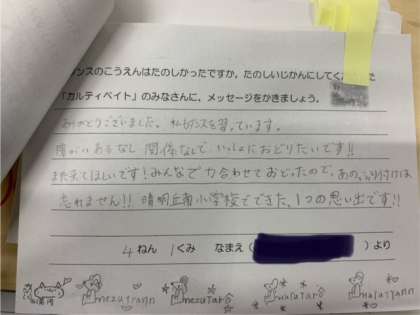 ンスのこうえんはたのしかったですか。たのしいじかんにしてく
「カルティベイト」のみなさんに、メッセージをかきましょう。
ありがとうございました。私もダンスを習っています。
障がいあるなし関係なしで、いっしょにおどりたいです!!
また来てほしいです!みんなで力合わせておどったので、あのふり付けは
忘れません!!晴明丘南小学校でできた、1つの思い出です!!
4ねん 1くみ なまえ( )より